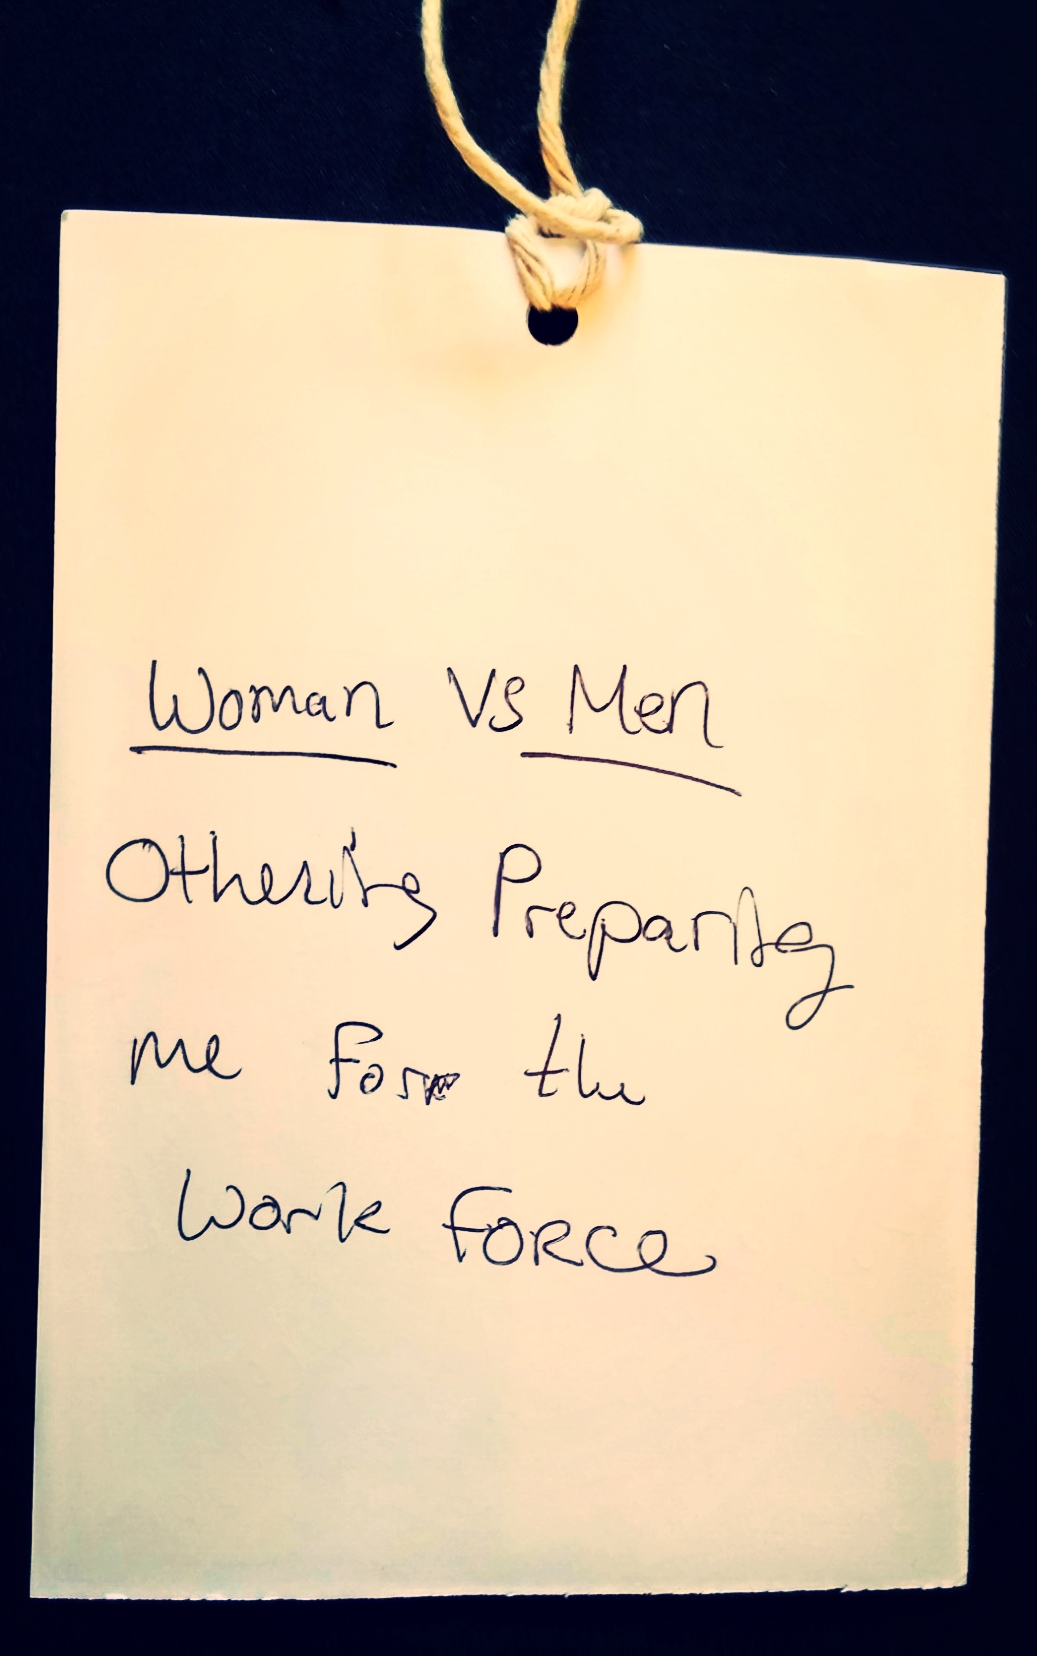 Woman Vs Men
Othering Preparing
me for the
Work FORCE